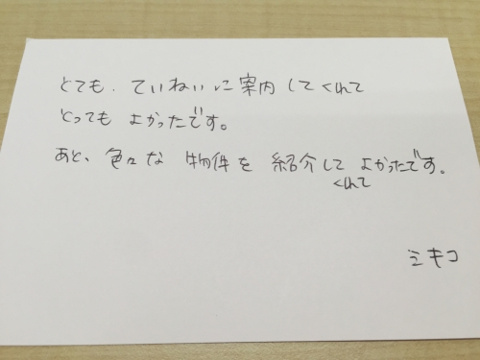 とても、ていねいに案内してくれて
とってもよかったです。
あと、色々な物件を紹介してよかったです。
くれて
ミキコ